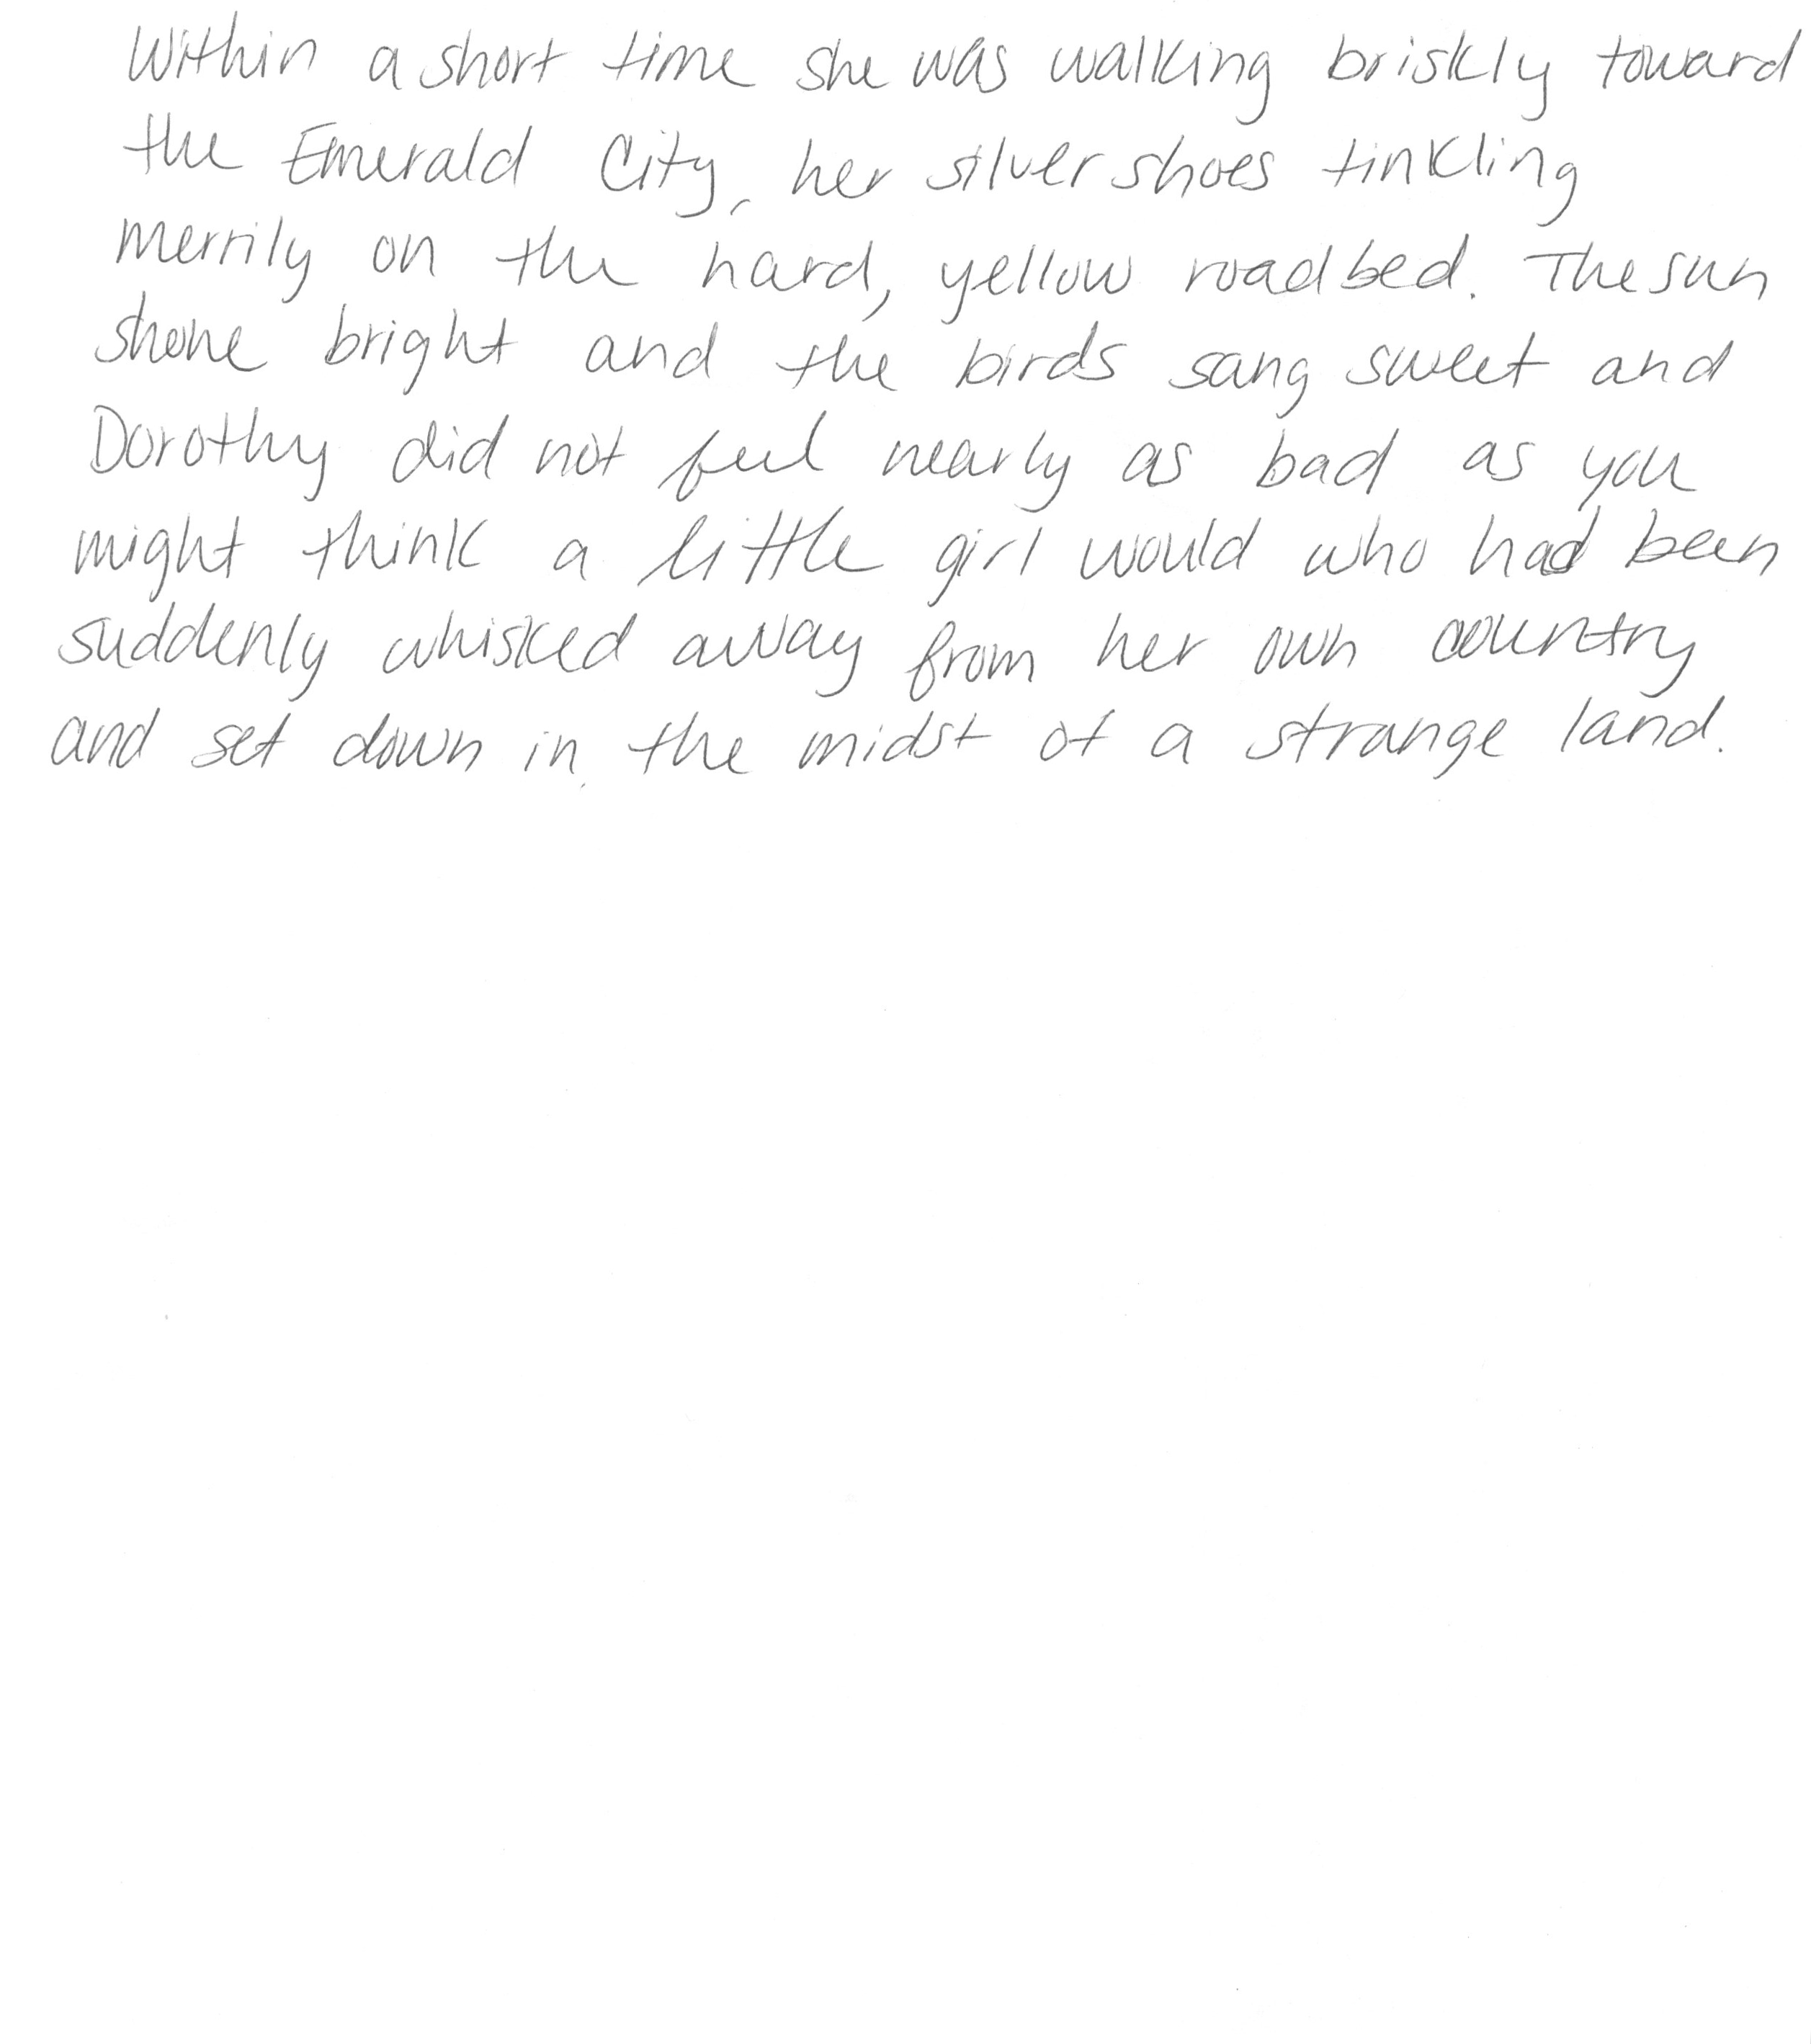 Within a short time she was walking briskly toward
the Emerald City, her silver shoes tinkling
merrily on the hard, yellow roadbed. The sun
shone bright and the birds sang sweet and
Dorothy did not feel nearly as bad as you
might think a little girl would who had been
suddenly whisked away from her own country
and set down in the midst of a strange land.